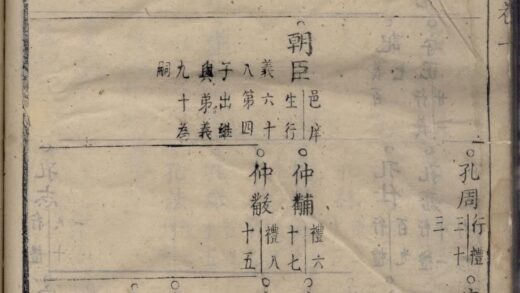 孔周
行禮
三十
三
朝臣
邑庠
生行
義六十
八第四
子出继
與弟義
九十為
嗣
仲黼
禮六
十七
仲黻
禮八
十五